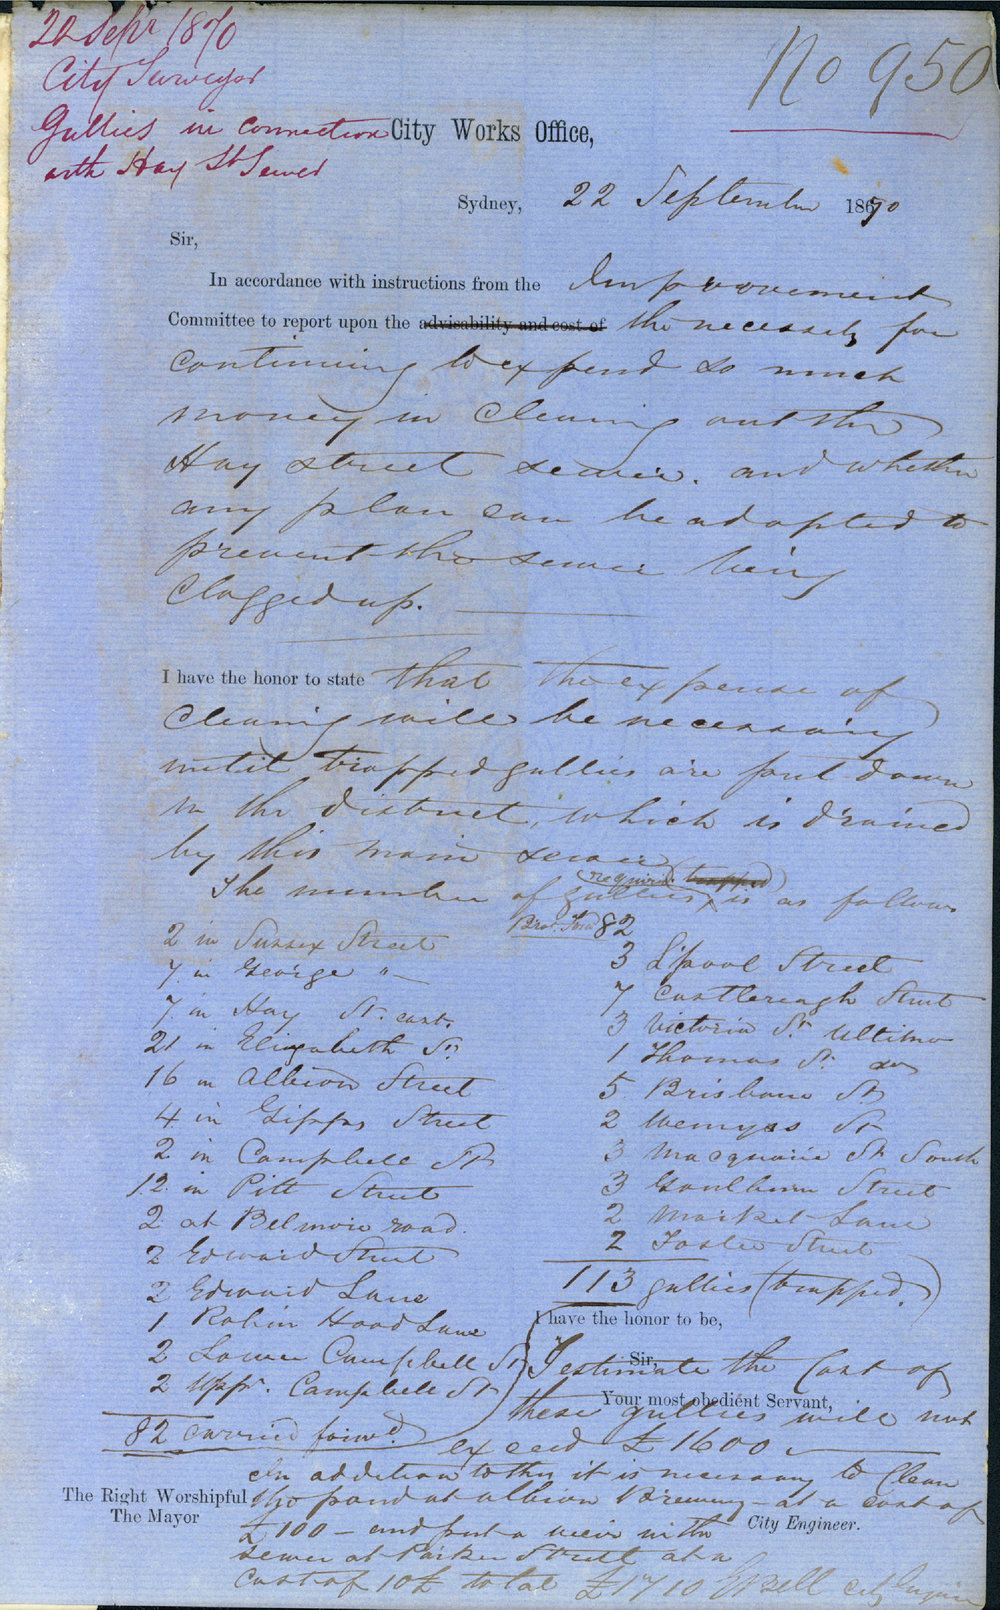 20 Sepr 1870
City Surveyor
Gullies in connection
with Hay St Sewer
No 950
City Works Office,
Sydney, 22 September 1870
Sir,
In accordance with instructions from the Improvement
Committee to report upon the advisability and cost of the necessity for
continuing to expend so much
money in cleaning out the
Hay street sewer. and whether
any plan can be adopted to
prevent the sewer being
Clogged up.
I have the honor to state that the expense of
cleaning will be necessary
until trapped gullies are put down
in the district, which is drained
by this main sewer
The number of gullies required trapped is as follows
2 in Sussex Street
7 in George "
7 in Hay St. east.
21 in Elizabeth St.
16 in Albion Street
4 in Gipps Street
2 in Campbell St
12 in Pitt Street
2 at Belmore road.
2 Edward Street
2 Edward Lane
1 Robin Hood Lane
2 Lower Campbell St
2 Uppr. Campbell St
82 carried forwd.
Brot. Ford 82
3 L'pool Street
7 Castlereagh Street
3 Victoria St. Ultimo
1 Thomas St. do
5 Brisbane St
2 Wemyss St
3 Macquarie St South
3 Goulburn Street
2 Market Lane
2 Foster Street
113 gullies (trapped.)
I have the honor to be,
Sir,
Your most obedient Servant,
I estimate the Cost of
these gullies will not
exceed £1600.
In addition to this it is necessary to Clean
the pond at Albion Brewery - at a cost of
£100 - and put a weir in the
sewer at Parker Street at a
cost of 10£ total £1710 E Bell City Engineer
The Right Worshipful
The Mayor
City Engineer.